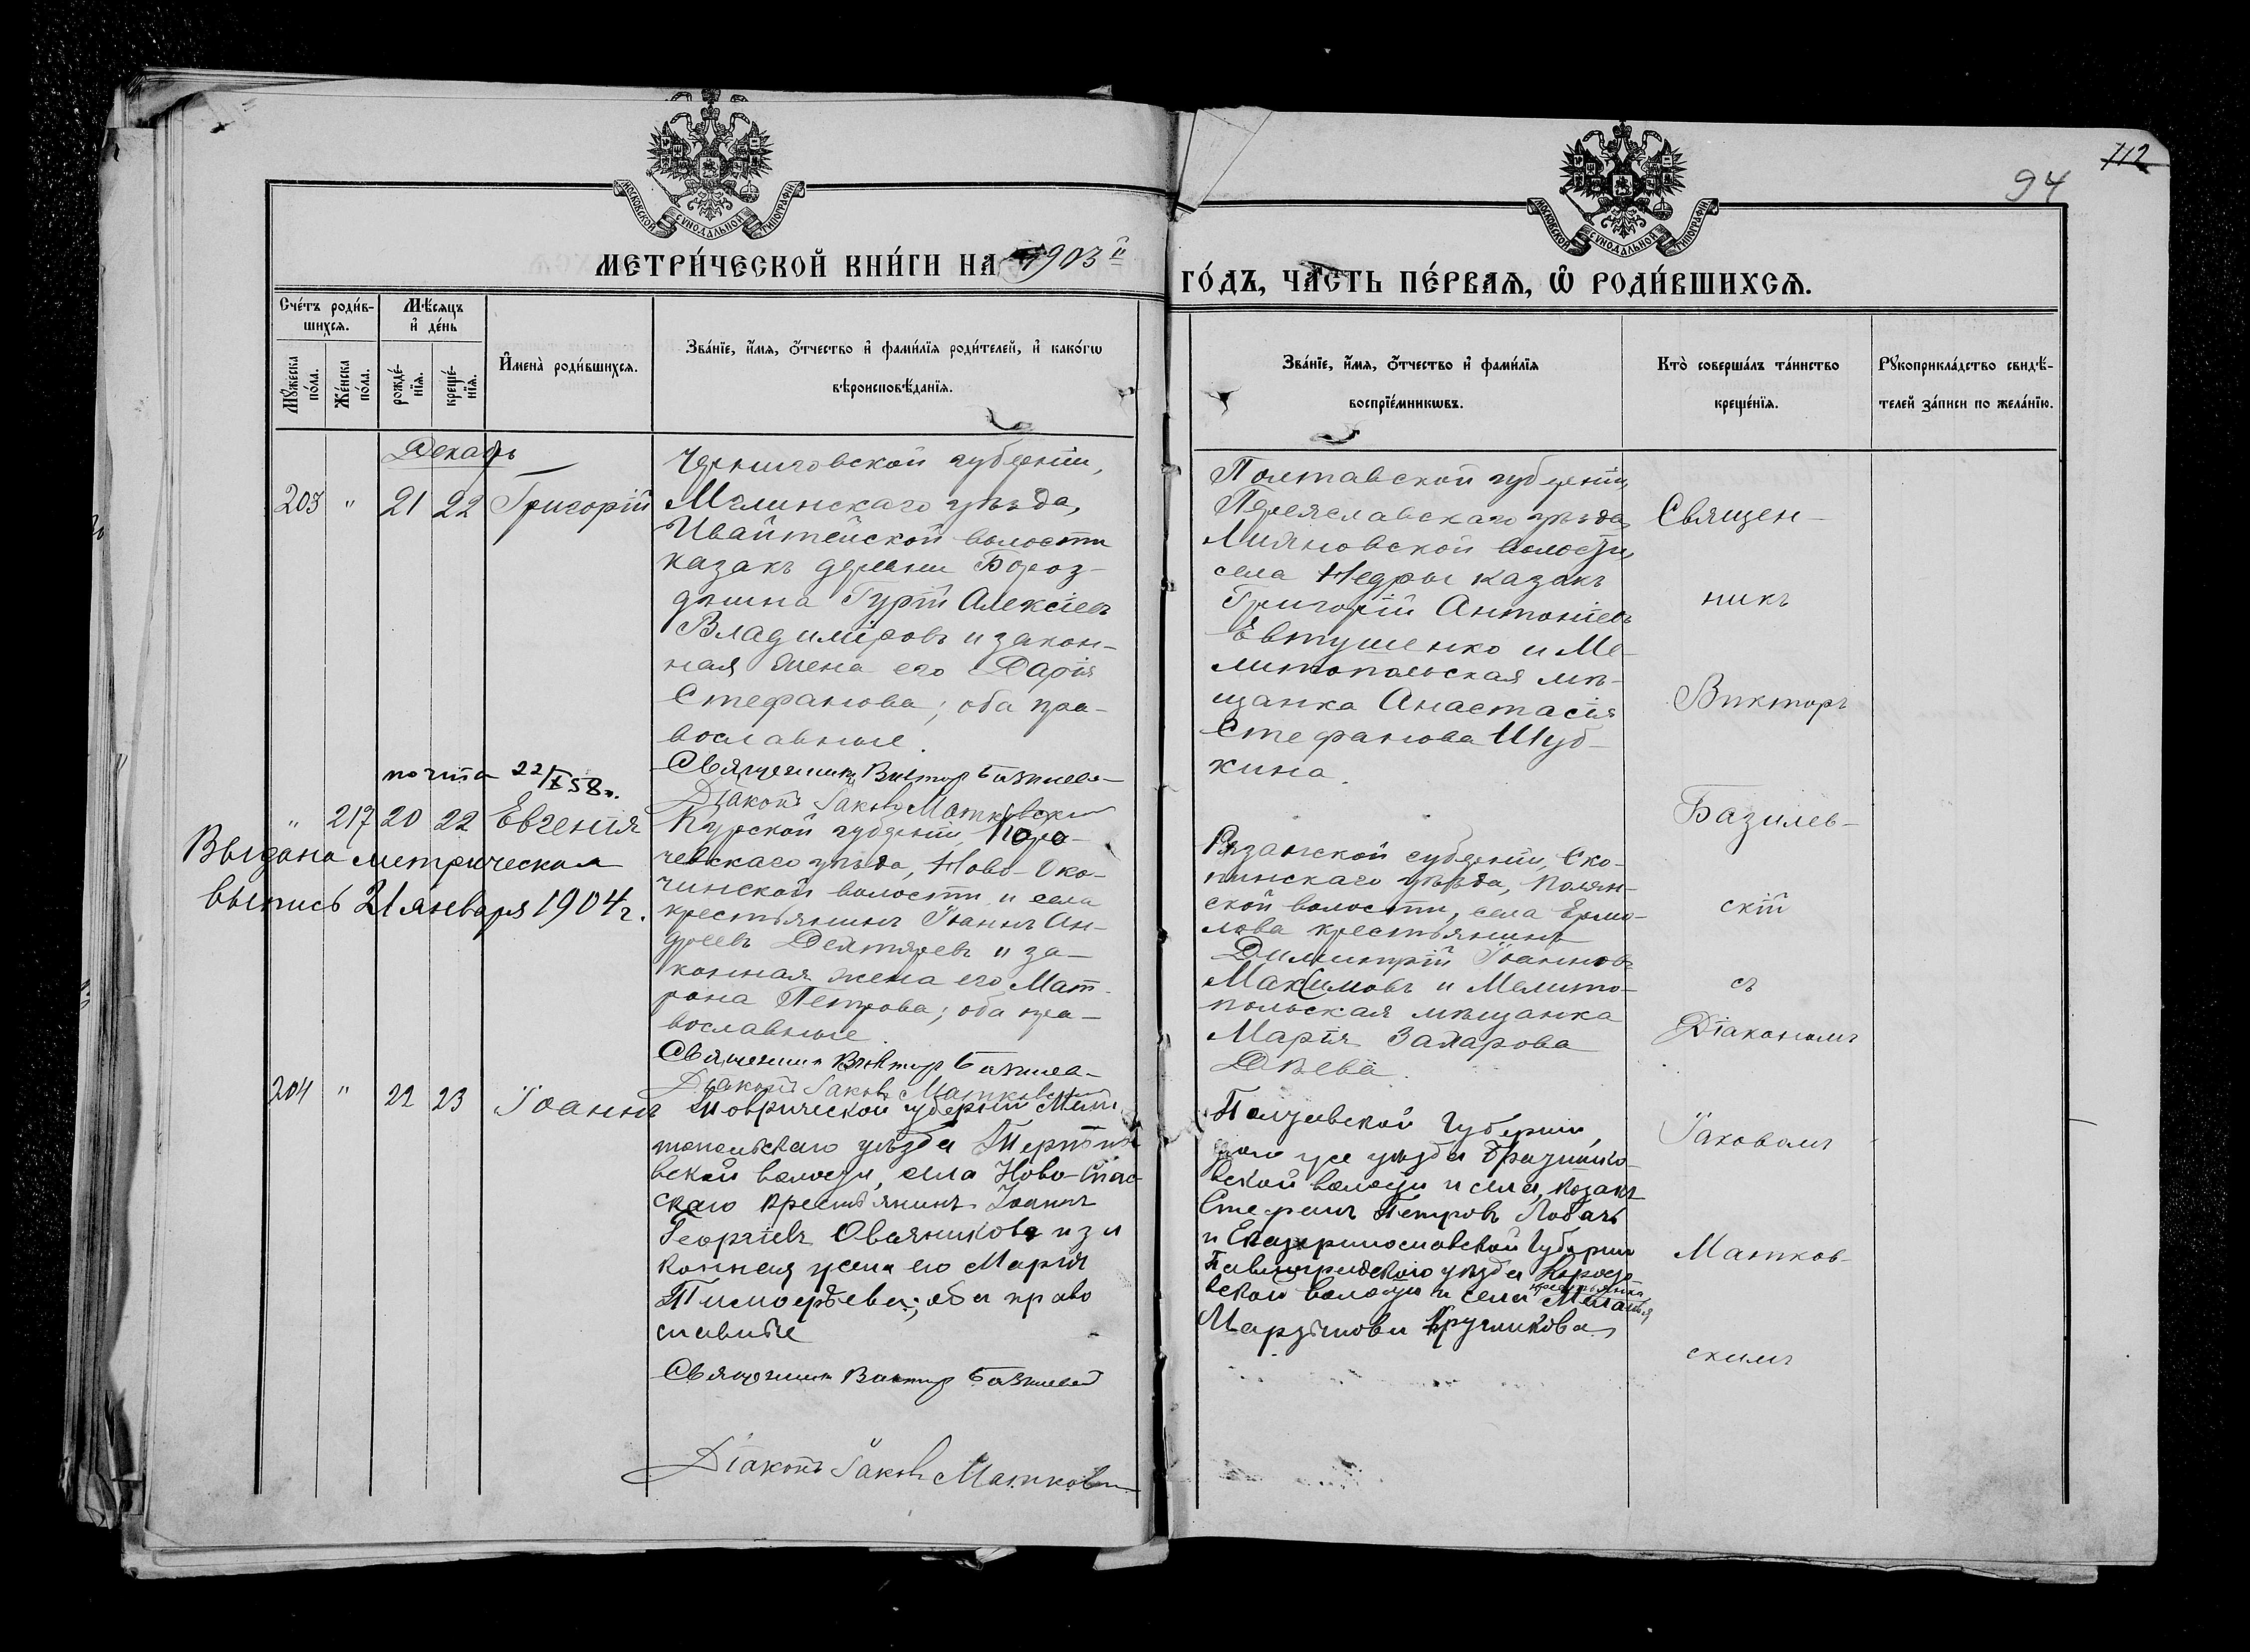 112
94
МОСКОВСКОЙ СУНОДАЛЬНОЙ ТИПОГРАФІИ
МОСКОВСКОЙ СУНОДАЛЬНОЙ ТИПОГРАФІИ
МЕТРИ́ЧЕСКОЙ КНИ́ГИ НА 1903й
ГО́ДЪ, ЧА́СТЬ ПЕ́РВАѦ, Ѽ РОДИ́ВШИХСѦ.
Сче́тъ роди́в-
шихсѧ.
Мꙋ́жеска по́ла.
Же́нска по́ла.
Мѣ́сѧцъ
и҆ де́нь
рожде́-
нїѧ.
креще́-
нїѧ.
И҆мена̀ роди́вшихсѧ.
Зва́нїе, и҆́мѧ, ѻ҆́тчество и҆ фами́лїѧ роди́телей, и҆ како́гѡ
вѣроисповѣ́данїѧ.
Зва́нїе, и҆́мѧ, ѻ҆́тчество и҆ фами́лїѧ
воспрїе́мникѡвъ.
Кто̀ соверша́лъ та́инство
креще́нїѧ.
Рꙋкоприкла́дство свидѣ́-
телей за́писи по жела́нїю.
Декабрь
203 " 21 22 Григорій
Черниговской губерніи,
Мглинскаго уѣзда,
Ивайтейской волости
казакъ деревни Бороз-
днина Гурій Алексіевъ
Владиміровъ и закон-
ная жена его Дарія
Стефанова; оба пра-
вославные.
Священникъ Викторъ Базилев
Діаконъ Іаковъ Матковскій
Полтавской губерніи,
Переяславскаго уѣзда,
волости,
села Недры казакъ
Григорій Антоніевъ
Евтушенко и Ме-
литопольская мѣ-
щанка Анастасія
Стефанова Шуб-
кина.
почта 22/X 58г.
" 217 20 22 Евгенія
Выдана метрическая
выпись 21 января 1904 г.
Курской губерніи, Коро-
чевскаго уѣзда, Ново-Ско-
чинской волости и села
крестьянинъ Іоаннъ Ан-
дреевъ Дехтяревъ и за-
конная жена его Мат-
рона Петрова; оба пра-
вославные.
Священникъ Викторъ Базилев
Діаконъ Іаковъ Матковскій
Рязанской губерніи, Ско-
пинскаго уѣзда, Полян-
ской волости, села Ермо-
лова крестьянинъ
Димитрій Іоанновъ
Максимовъ и Мелито-
польская мѣщанка
Марія Захарова
204 " 22 23 Іоаннъ
Таврической губерніи Мели
топольскаго уѣзда
вской волости, села Ново-Спас
скаго крестьянинъ Іоаннъ
Георгіевъ Овсяниковъ и за
конная жена его Марія
Тимофѣева; оба право
славные
Священникъ Викторъ Базилев
Діаконъ Іаковъ Матковскій
Полтавской Губерніи,
того же уѣзда
вской волости и села, козакъ
Стефанъ Петровъ Лобачъ
и Екатеринославской Губерніи
Павлоградскаго уѣзда
вской волости и села крестьянка Меланія
Мартынова Кругликова
Священ-
никъ
Викторъ
Базилев-
скій
съ
Діакономъ
Іаковомъ
Матков-
скимъ